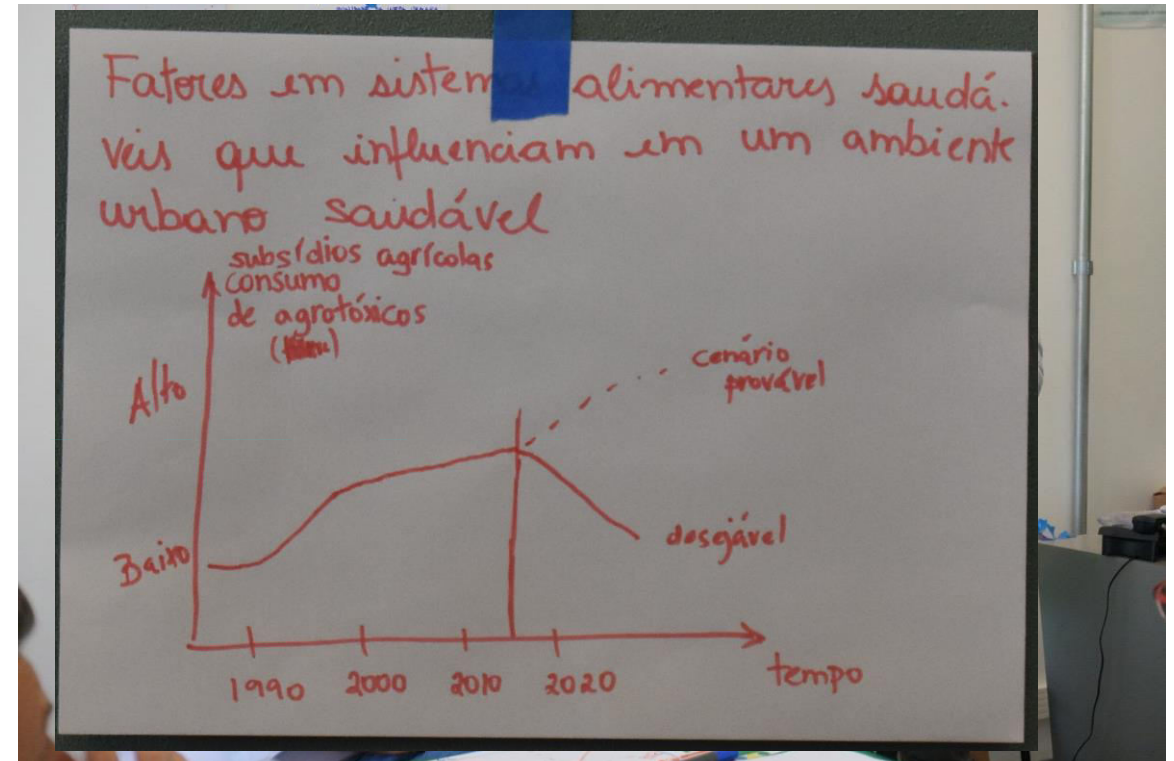 Fatores em sistemas alimentares saudá-
veis que influenciam em um ambiente
urbano saudável
subsídios agrícolas
consumo
de agrotóxicos
Alto
cenário
provável
Baixo
desejável
1990 2000 2010 2020
tempo